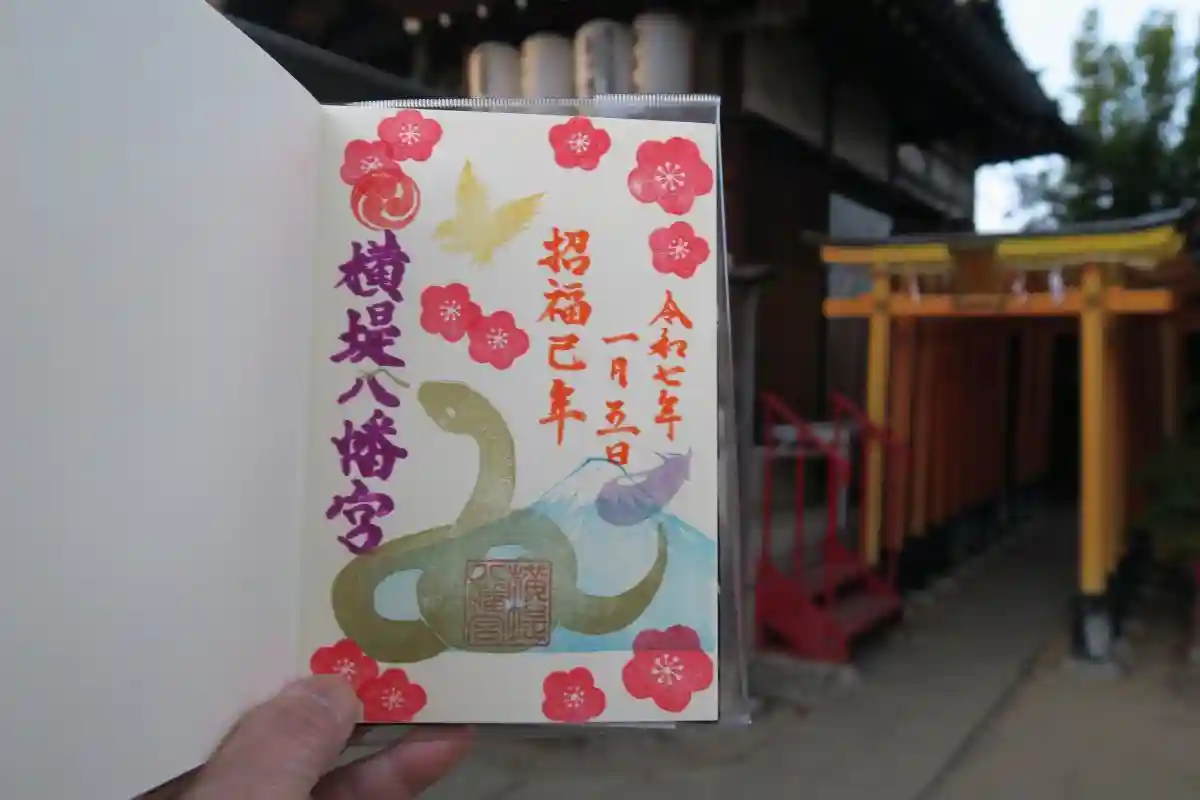 令和七年
一月五日
招福己年
横堤八幡宮
横堤
八幡宮